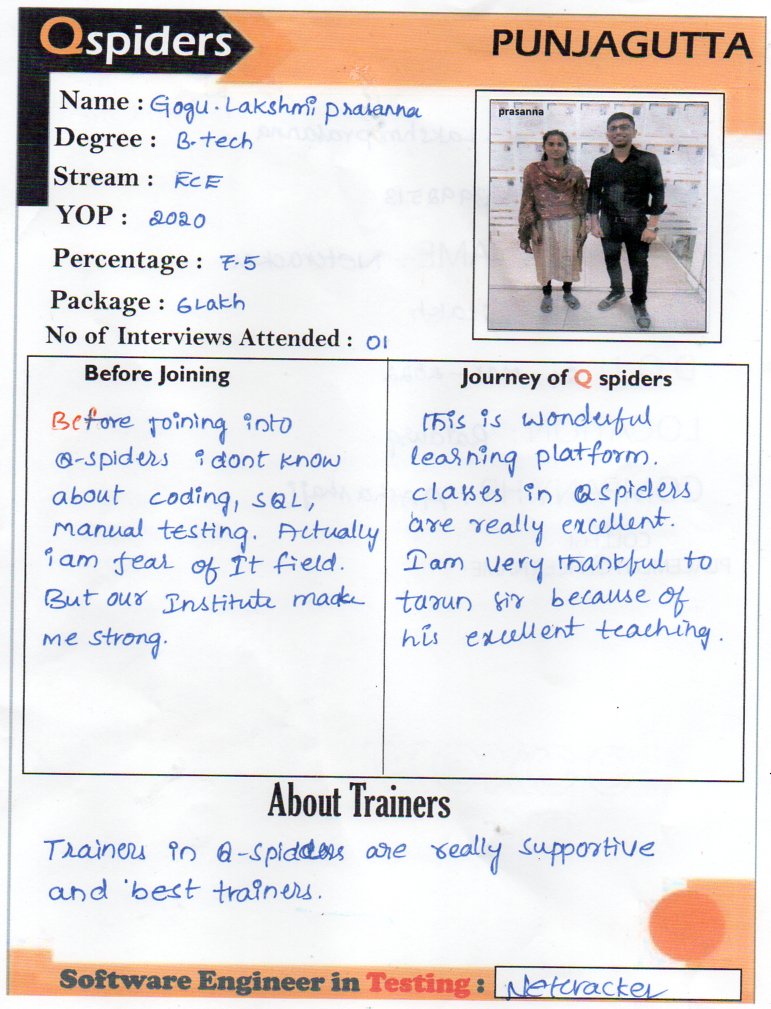 Qspiders
PUNJAGUTTA
Name : Gogu. Lakshmi prasanna
Degree : B.tech
Stream : ECE
YOP : 2020
Percentage : 7.5
Package : 6 Lakh
No of Interviews Attended : 01
prasanna
Before Joining
Before joining into
Q-spiders i dont know
about coding, SQL,
manual testing. Actually
i am fear of It field.
But our Institute made
me strong.
Journey of Q spiders
This is wonderful
learning platform.
classes in Qspiders
are really excellent.
I am very thankful to
tarun sir because of
his excellent teaching.
About Trainers
Trainers in Q-spiders are really supportive
and best trainers.
Software Engineer in Testing : Netcracker